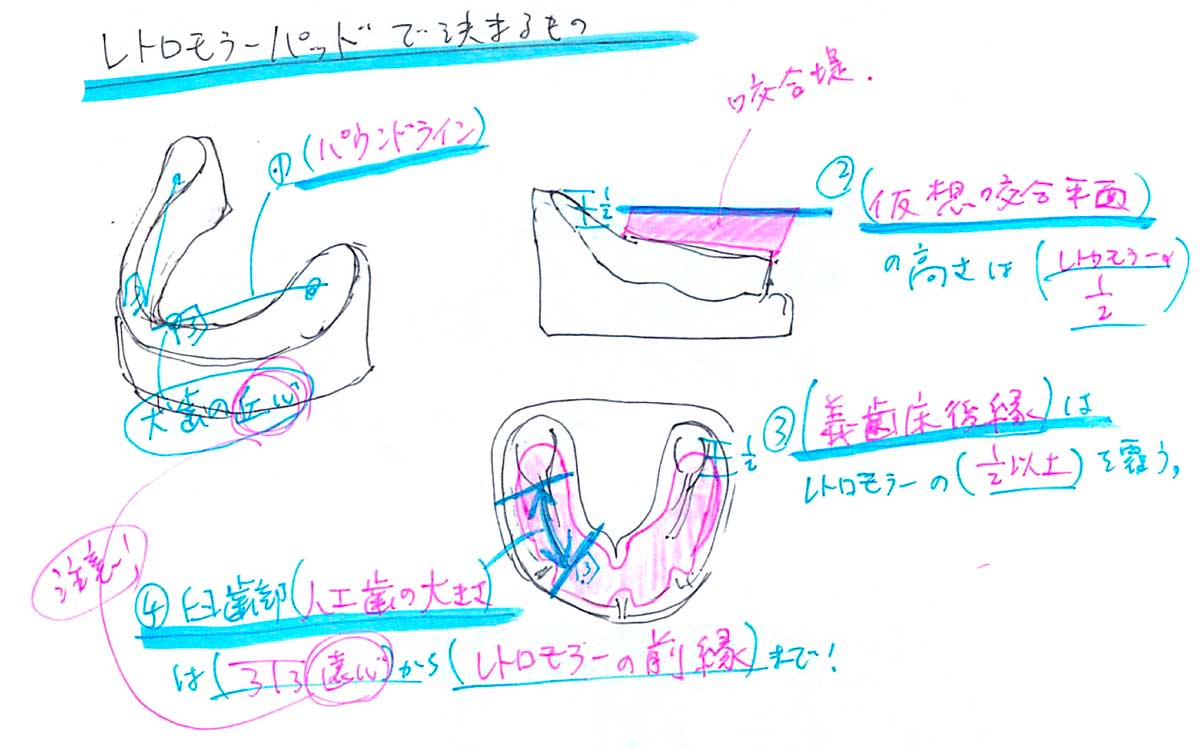 レトロモラーパッドで決まるもの
①(パウンドライン)
犬歯の近心
咬合堤.
1/2
②(仮想咬合平面)
の高さは(レトロモラーの1/2)
1/2
③(義歯床後縁)は
レトロモラーの(1/2以上)を覆う。
3
3
3
注意!
④臼歯部(人工歯の大きさ)
は(3|3遠心)から(レトロモラーの前縁)まで!